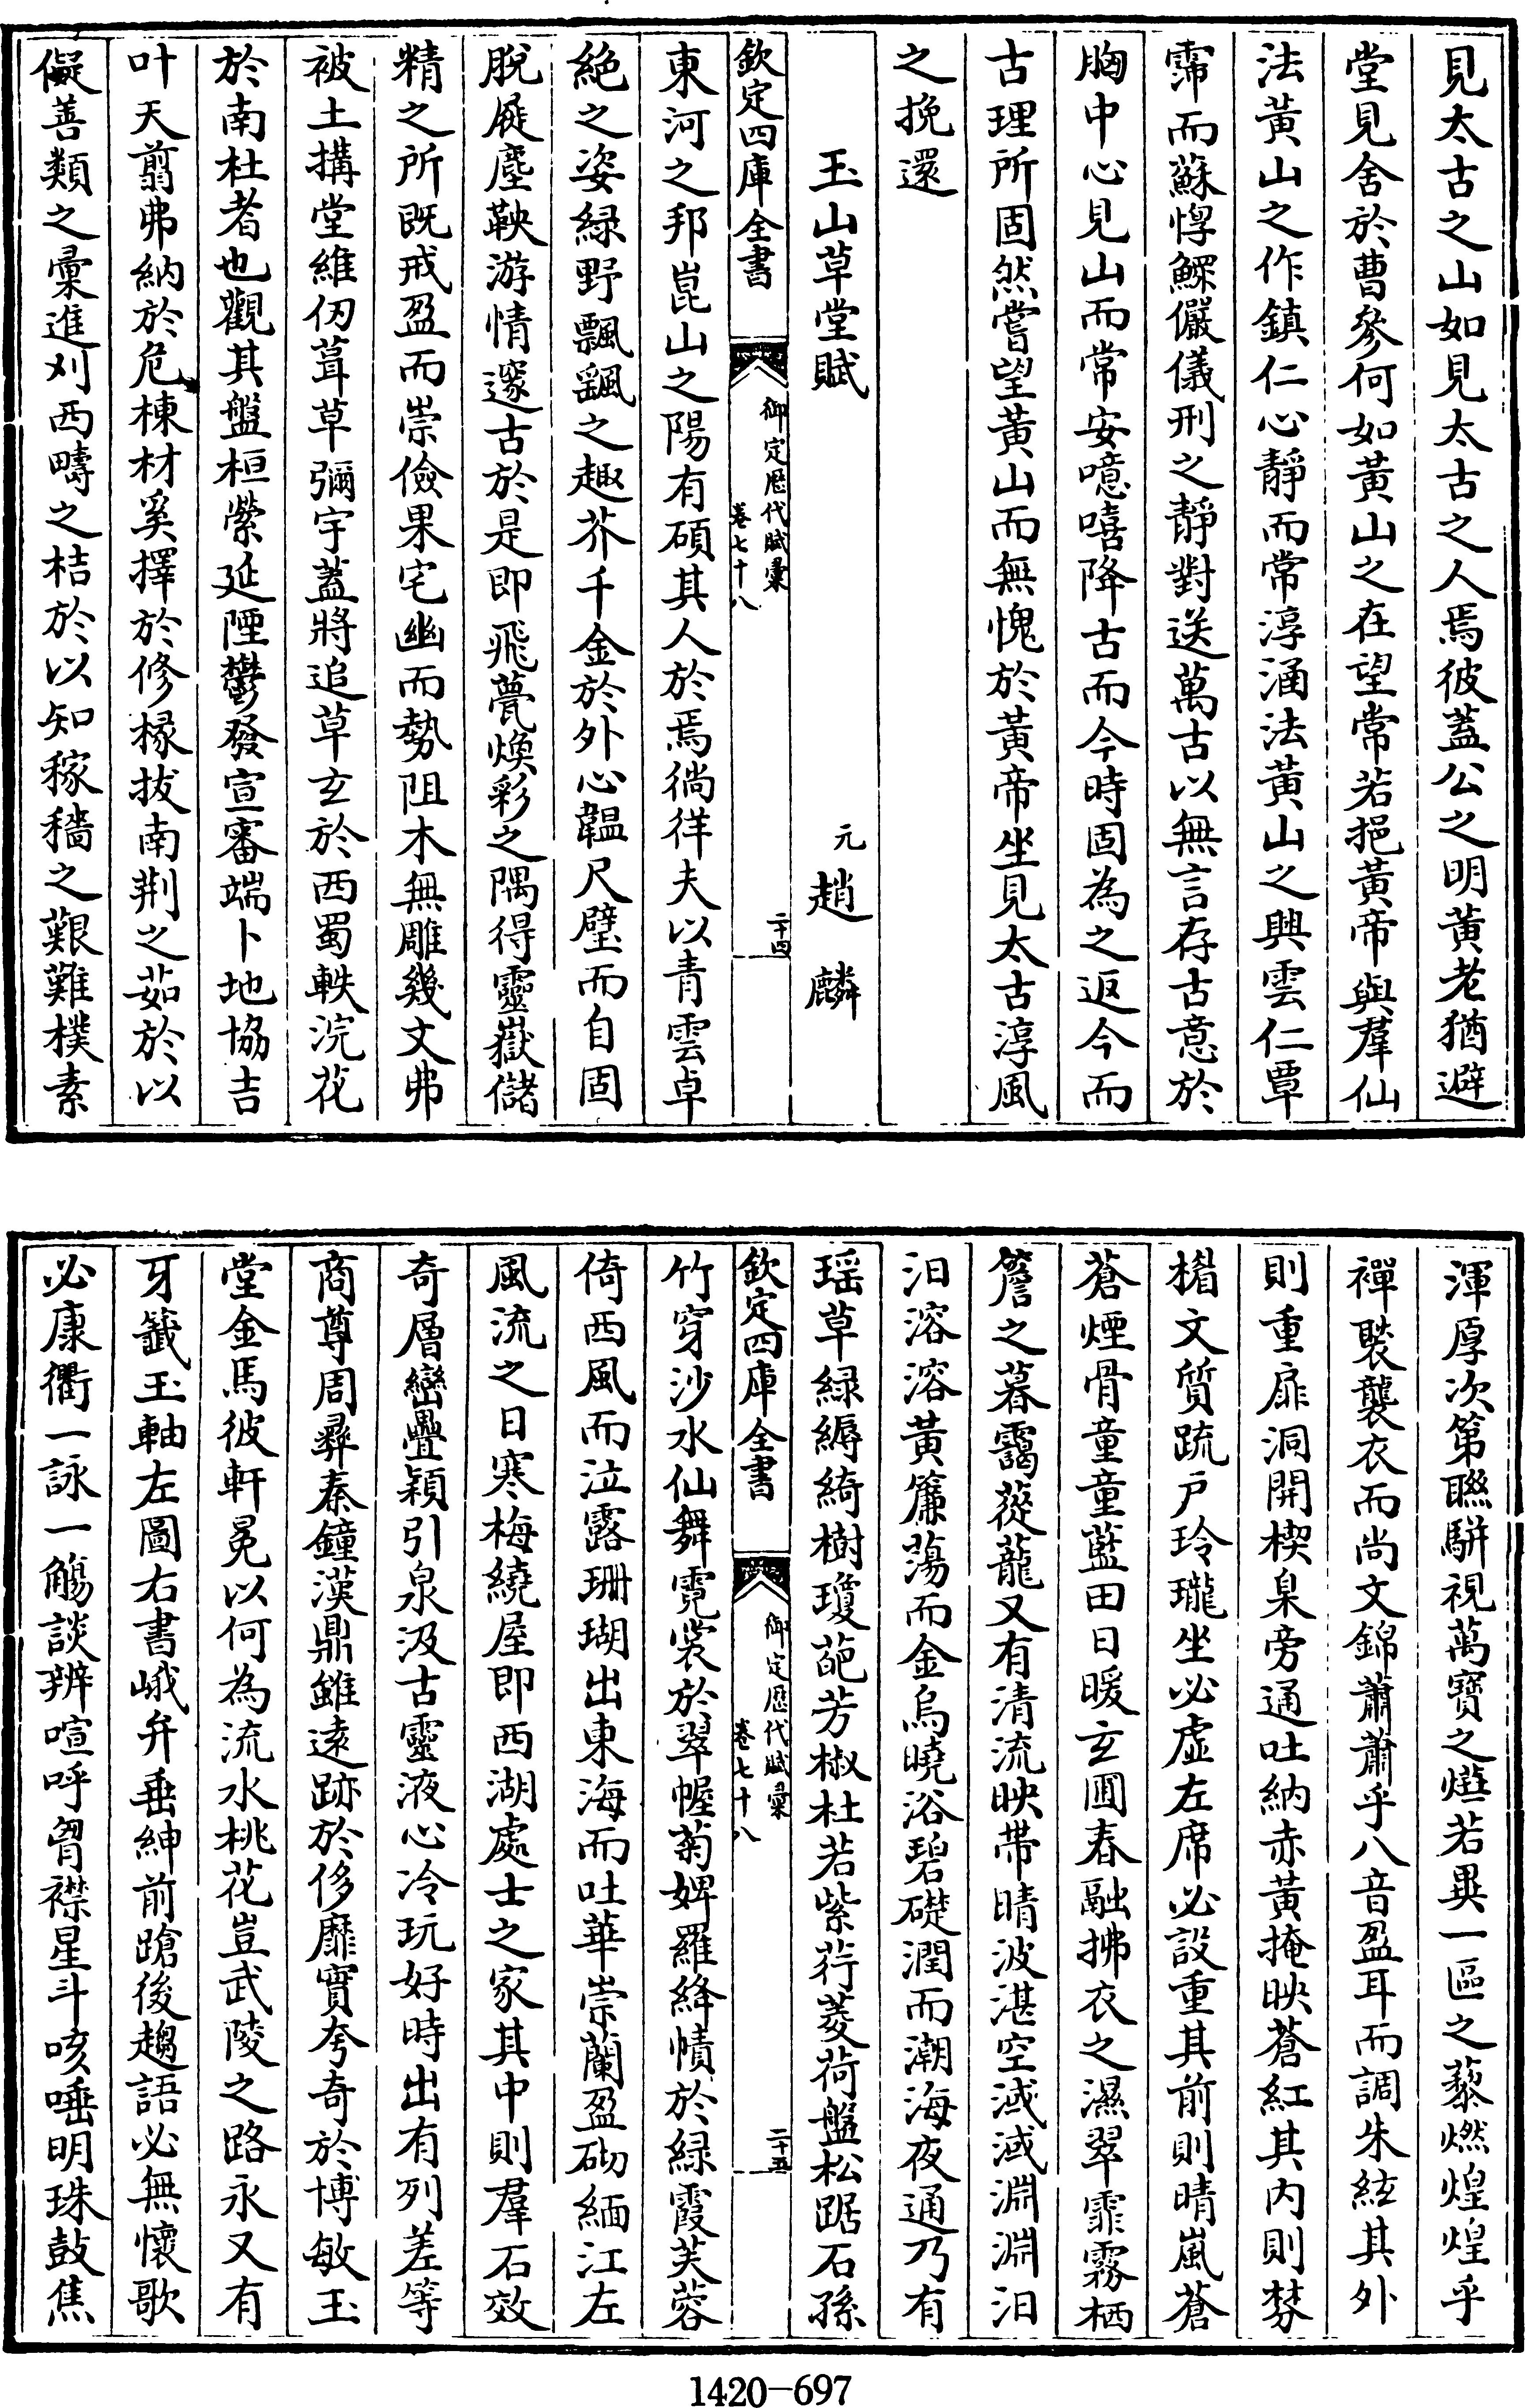 見太古之山如見太古之人焉彼蓋公之明黃老猶避
堂見舍於曹參何如黃山之在望常若挹黃帝與羣仙
法黃山之作鎮仁心靜而常淳涵法黃山之興雲仁覃
霈而蘇惸鰥儼儀刑之靜對送萬古以無言存古意於
胸中心見山而常安噫嘻降古而今時固為之返今而
古理所固然嘗望黃山而無愧於黃帝坐見太古淳風
之挽還
玉山草堂賦
元 趙麟
欽定四庫全書
御定歷代賦彙
卷七十八
二十四
東河之邦崑山之陽有碩其人於焉徜徉夫以青雲卓
絕之姿綠野飄飖之趣芥千金於外心韞尺璧而自固
脫屣塵鞅游情邃古於是即飛甍煥彩之隅得靈嶽儲
精之所既戒盈而崇儉果宅幽而勢阻木無雕幾文弗
被土搆堂維仞葺草彌宇蓋將追草玄於西蜀軼浣花
於南杜者也觀其盤桓縈延陻鬱發宣審端卜地協吉
叶天翦弗納於危棟材奚擇於修椽拔南荆之茹於以
儗善類之彙進刈西疇之桔於以知稼穡之艱難樸素
渾厚次第聯駢視萬寶之燵若異一區之藜燃煌煌乎
襌褧襲衣而尚文錦蕭蕭乎八音盈耳而調朱絃其外
則重扉洞開楔臬旁通吐納赤黃掩映蒼紅其內則棼
楣文質疏戶玲瓏坐必虛左席必設重其前則晴嵐蒼
蒼煙骨童童藍田日暖玄圃春融拂衣之濕翠霏霧栖
簷之暮靄蓯蘢又有清流映帶晴波湛空淢淢淵淵汨
汨溶溶黃簾蕩而金烏曉浴碧礎潤而潮海夜通乃有
瑶草緑縟綺樹瓊葩芳椒杜若紫荇菱荷盤松踞石孫
欽定四庫全書
御定歷代賦彙
卷七十八
二十五
竹穿沙水仙舞霓裳於翠幄菊婢羅絳幘於緑霞芙蓉
倚西風而泣露珊瑚出東海而吐華崇蘭盈砌緬江左
風流之日寒梅繞屋即西湖處士之家其中則羣石效
奇層巒疊穎引泉汲古靈液心冷玩好時出有列差等
商尊周彝秦鐘漢鼎雖遠跡於侈靡實夸奇於博敏玉
堂金馬彼軒冕以何為流水桃花豈武陵之路永又有
牙籤玉軸左圖右書峨弁垂紳前蹌後趨語必無懷歌
必康衢一詠一觴談辨喧呼胷襟星斗咳唾明珠鼓焦
1420-697